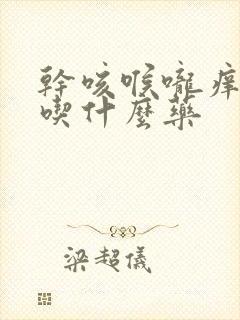 幹咳喉嚨痒
喫什麼藥
梁超儀